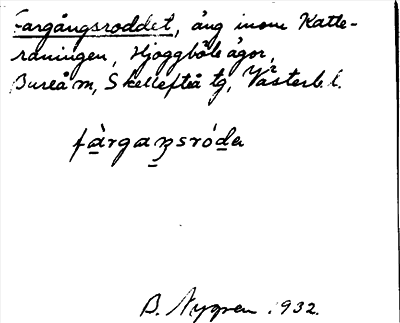 Fargångsroddet, äng inom Katte-
rdningen, Hjoggböle ägor,
Bureå m, Skellefteå tg, Västerb. l.
fàrgaŋsróde
B. Nygren 1932.